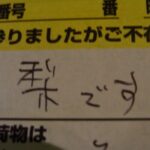 番号 番
参りましたがご不在
梨です
荷物は